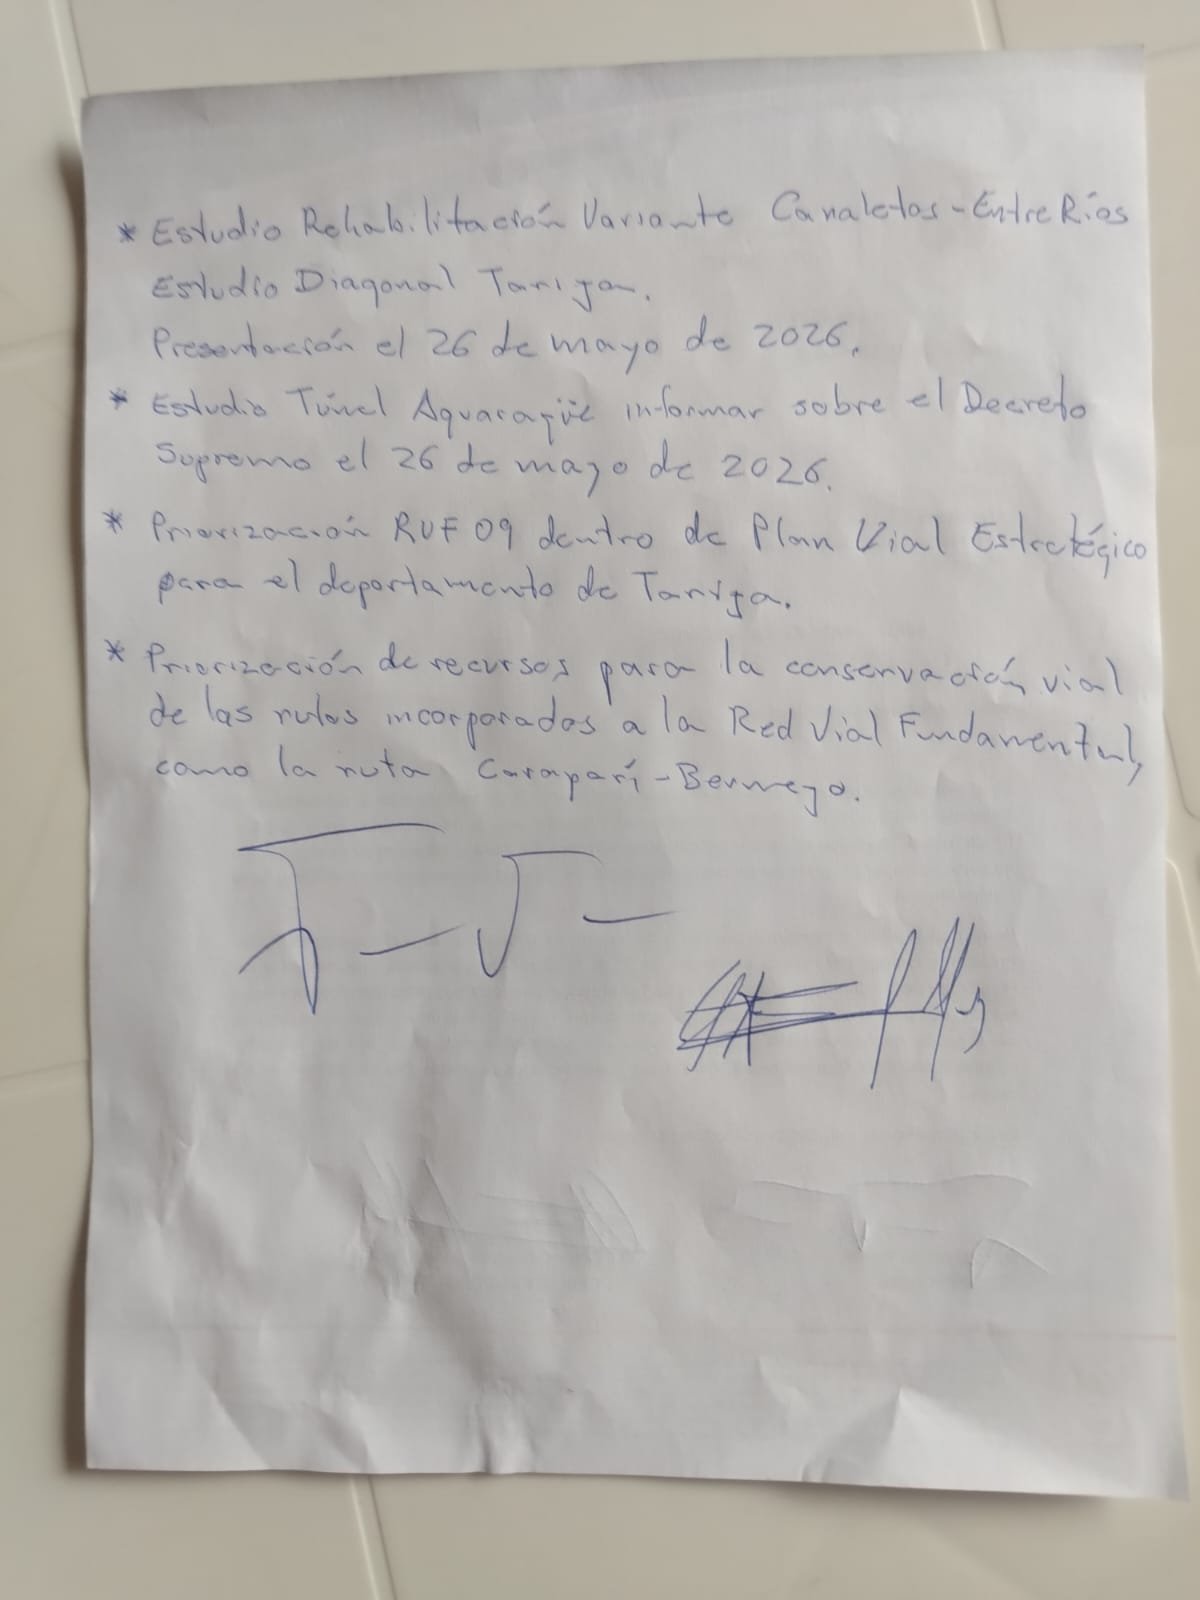 * Estudio Rehabilitación Variante Canaletas - Entre Ríos
Estudio Diagonal Tarija.
Presentación el 26 de mayo de 2026.
* Estudio Túnel Aguaragüe informar sobre el Decreto
Supremo el 26 de mayo de 2026.
* Priorización RVF 09 dentro de Plan Vial Estratégico
para el departamento de Tarija.
* Priorización de recursos para la conservación vial
de las rutas incorporadas a la Red Vial Fundamental,
como la ruta Caraparí - Bermejo.